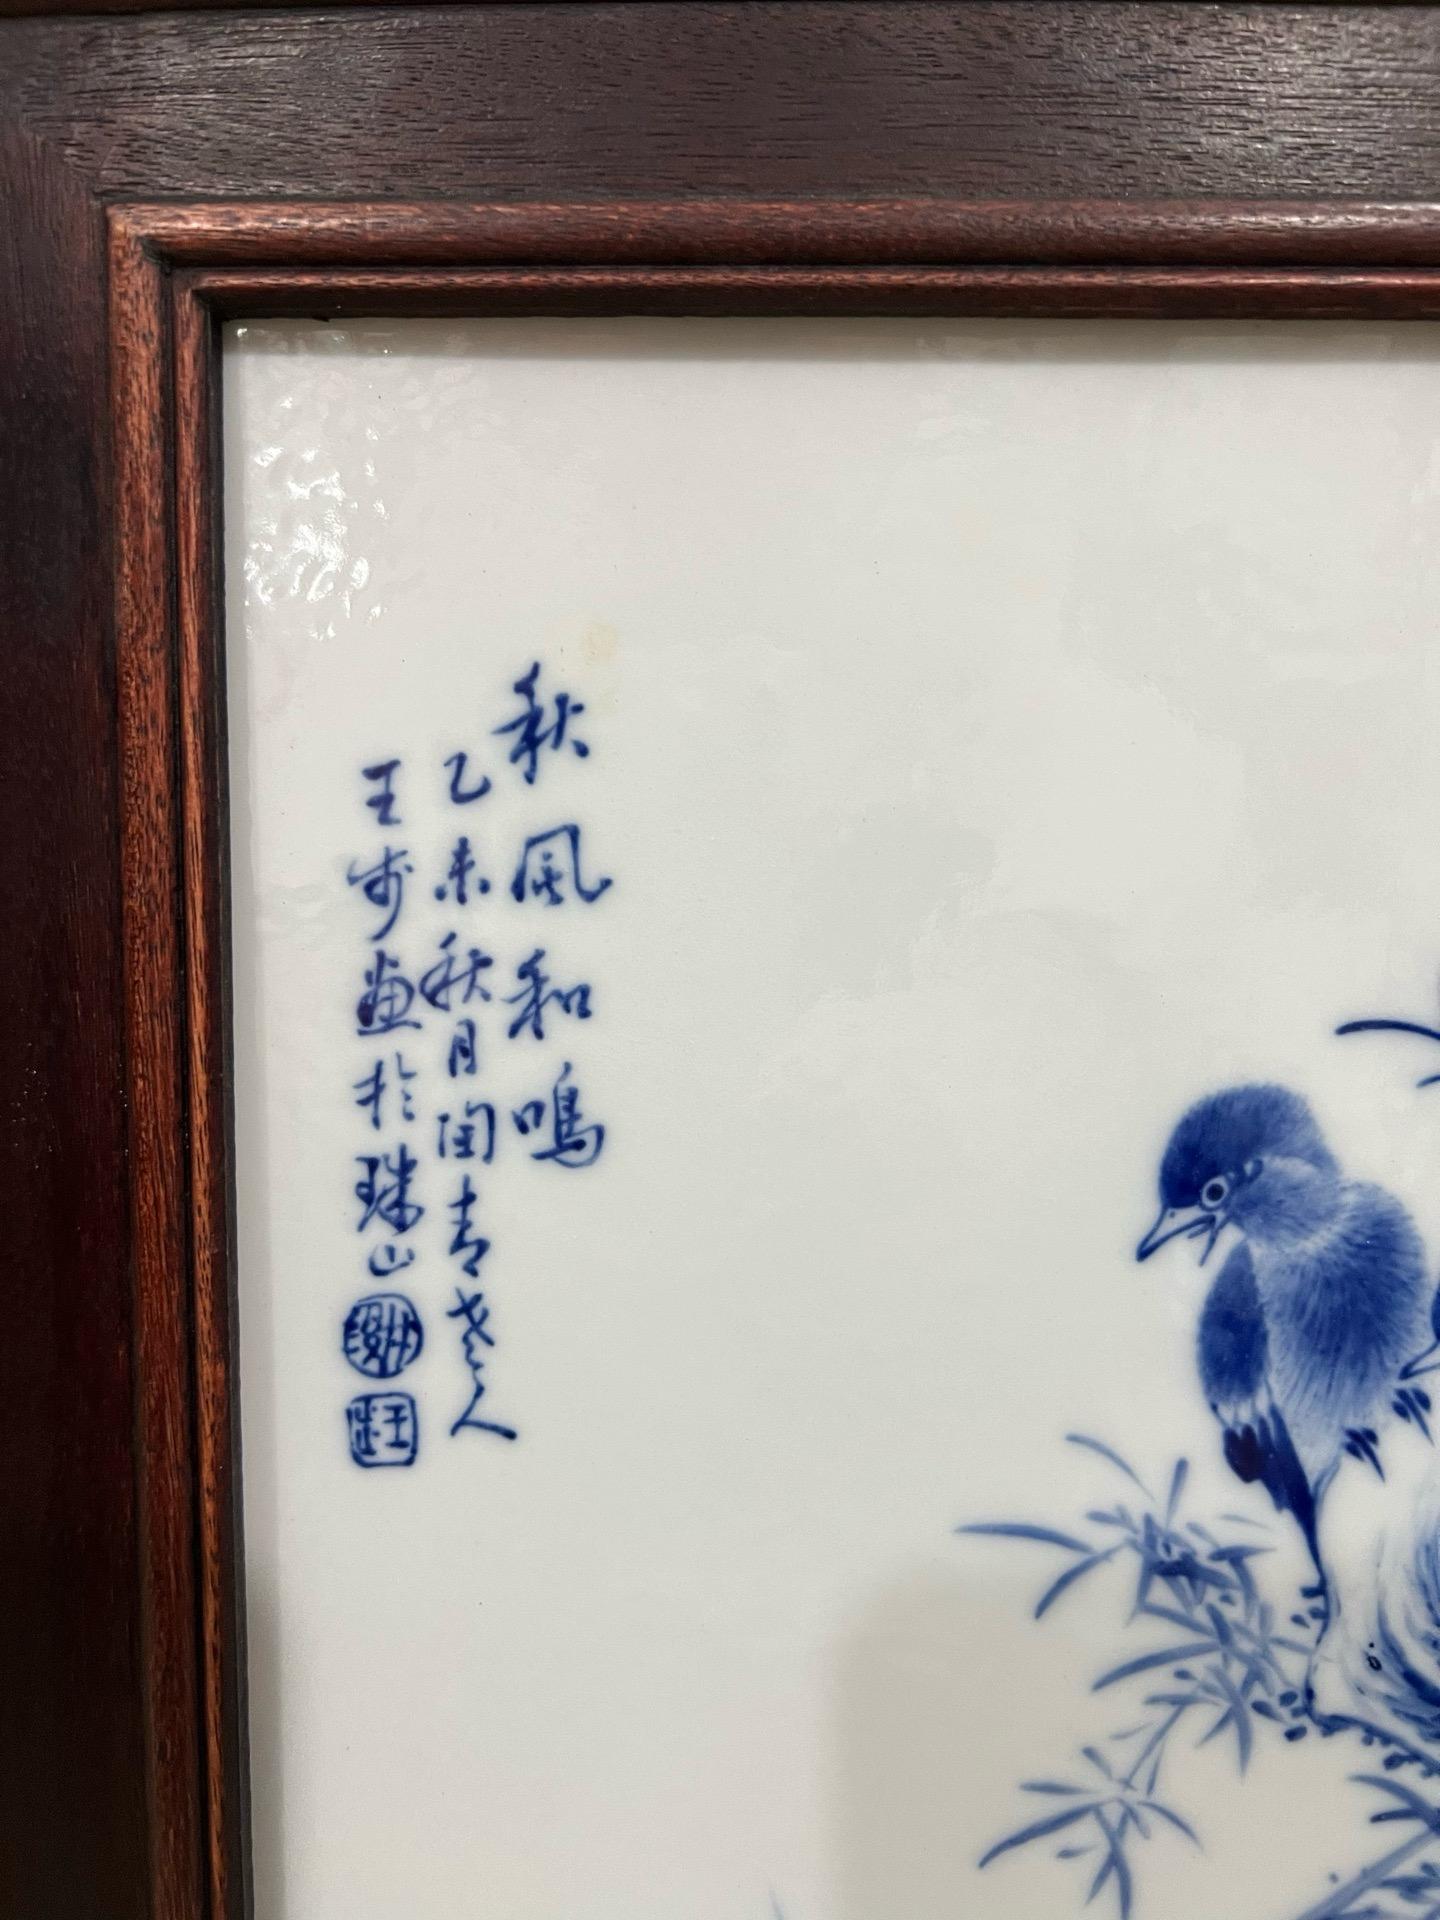 秋風和鳴
乙未秋月陶青老人
王步畫於珠山